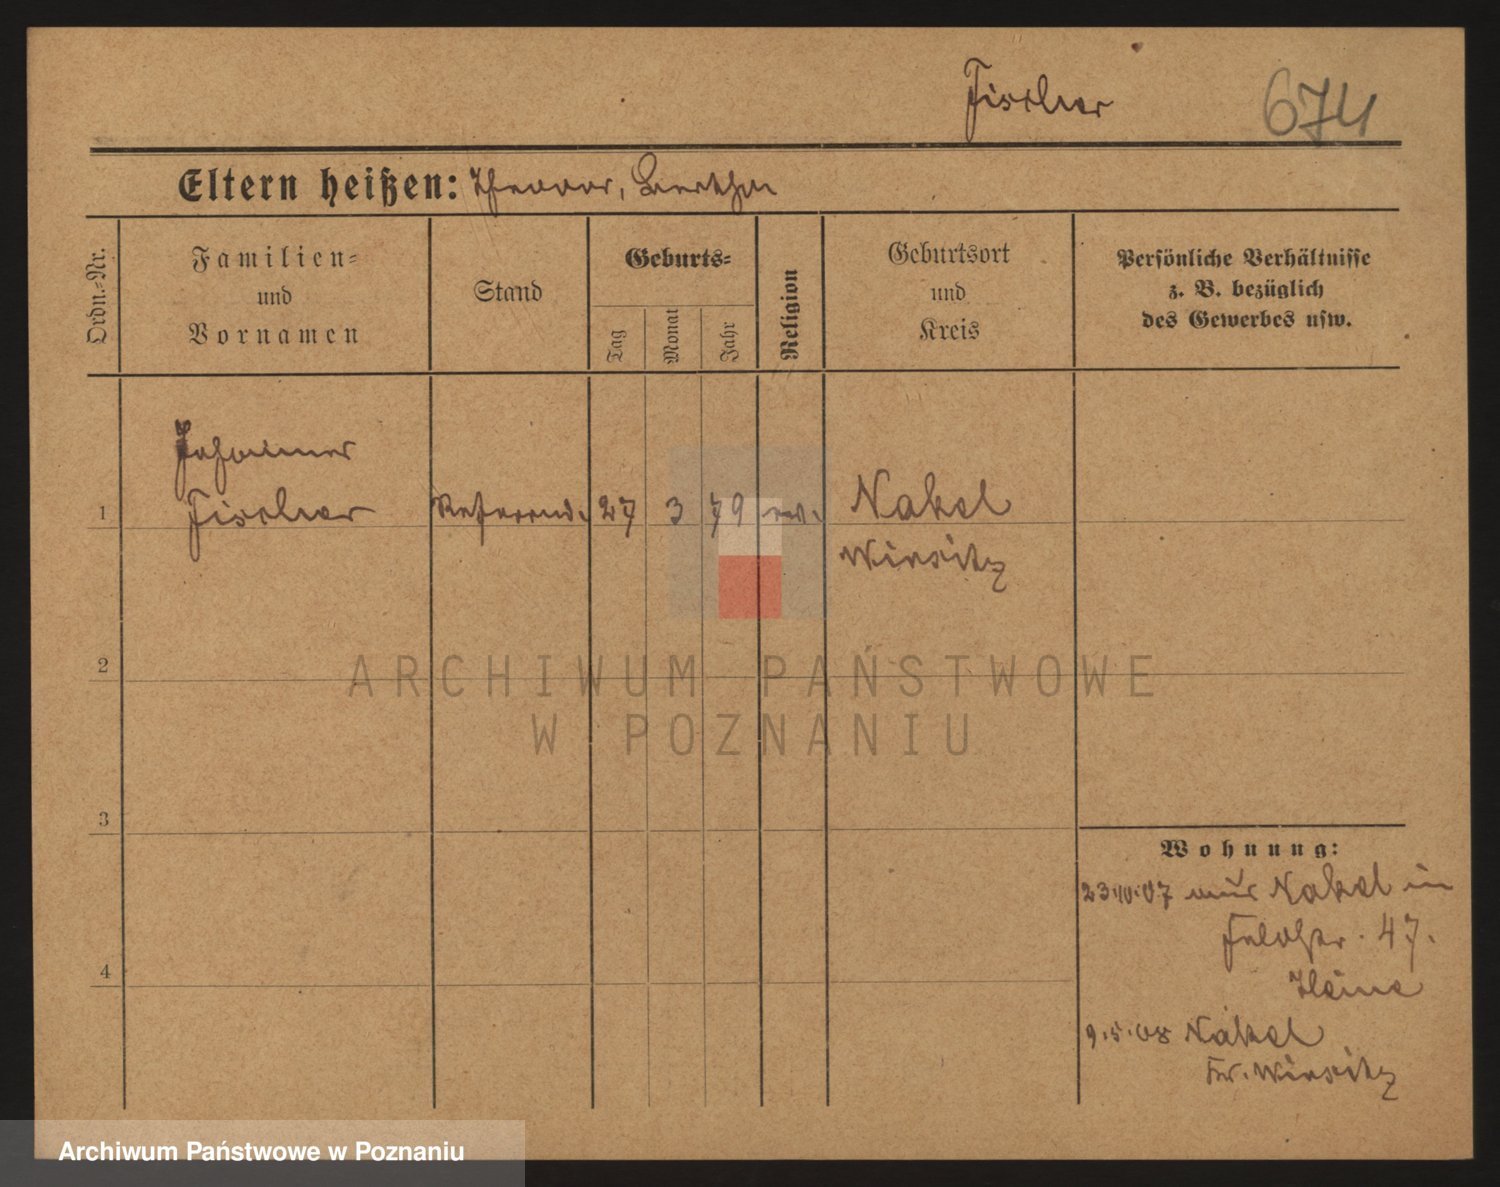 Fischer 674
Eltern heißen: Theodor, Bertha
Ordn.-Nr.
Familien-
und
Vornamen
Stand
Geburts-
Tag
Monat
Jahr
Religion
Geburtsort
und
Kreis
Persönliche Verhältnisse
z. B. bezüglich
des Gewerbes usw.
Johannes
1 Fischer Referend. 27 3 79 ev. Nakel
Wirsitz
2
3
4
Wohnung:
23.10.07 aus Nakel in
47.
9.5.08 Nakel
Kr. Wirsitz
ARCHIWUM PAŃSTWOWE
W POZNANIU
Archiwum Państwowe w Poznaniu